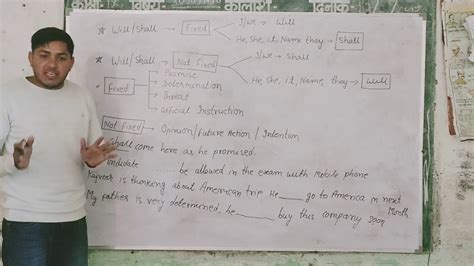 विषय कालांश दिनांक
* Will/Shall → Fixed I/we → Will
He, She, it, Name they → Shall
* Will/Shall → Not Fixed I/we → Shall
He, She, it, Name, they → Will
* Fixed → Promise
→ Determination
→ Threat
→ Official Instruction
Not Fixed → Opinion/Future Action/Intention
Shall come here as he promised.
ndidate ____ be allowed in the exam with Mobile phone
Rajveer is thinking about American trip He ____ go to America in next Month
My father is very determined he ____ buy this company soon